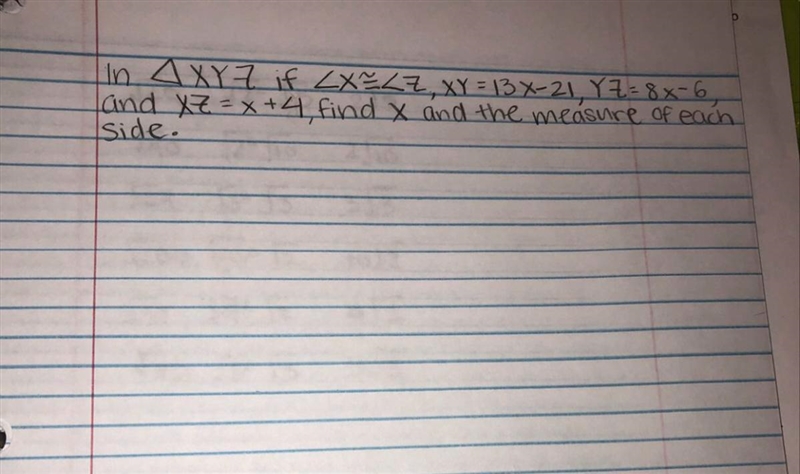 In △XYZ if ∠X≅∠Z, XY=13x-21, YZ=8x-6,
and XZ=x+4, find x and the measure of each
side.